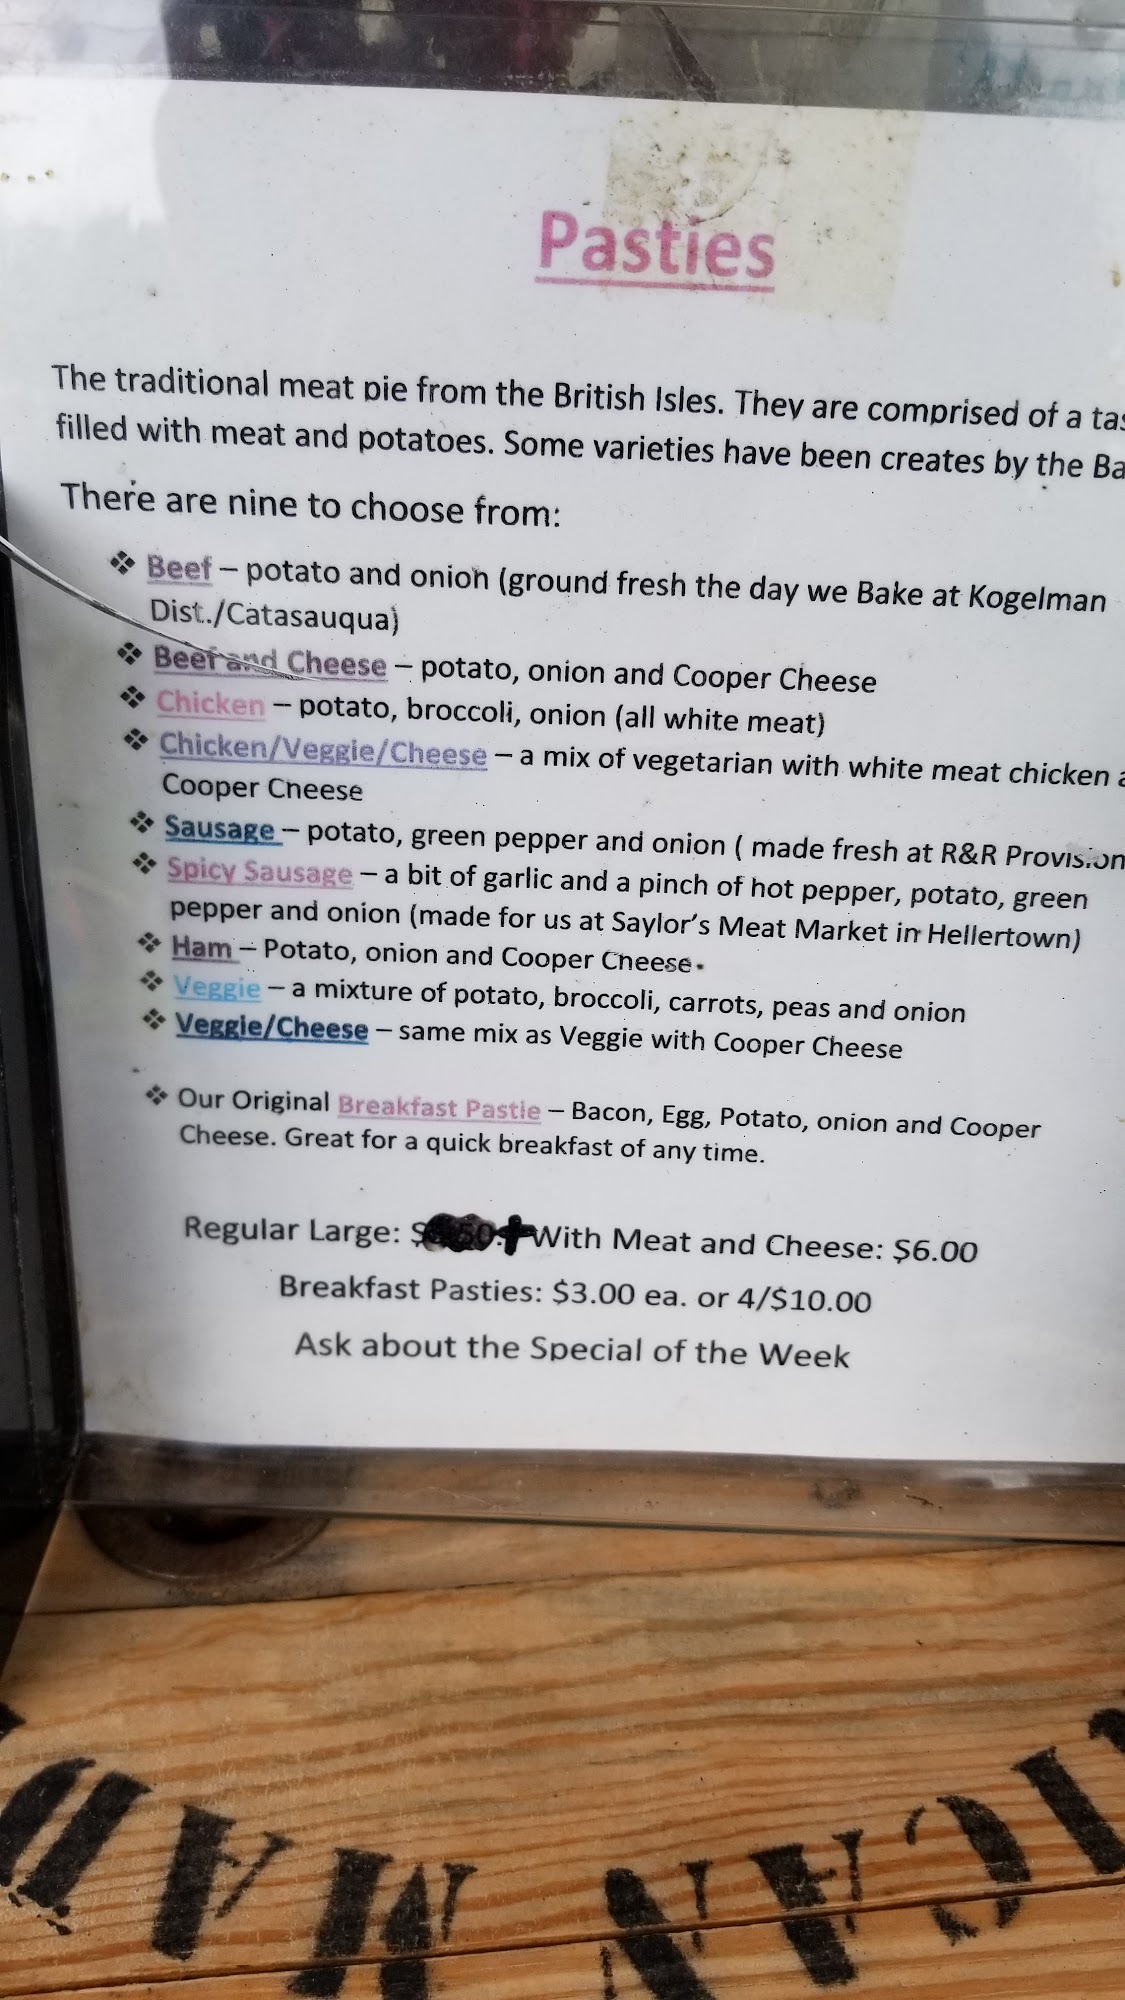 Pasties
The traditional meat pie from the British Isles. They are comprised of a
filled with meat and potatoes. Some varieties have been creates by the
There are nine to choose from:
❖ Beef – potato and onion (ground fresh the day we Bake at Kogelman
Dist./Catasauqua)
❖ Beef and Cheese – potato, onion and Cooper Cheese
❖ Chicken – potato, broccoli, onion (all white meat)
❖ Chicken/Veggie/Cheese – a mix of vegetarian with white meat chicken
Cooper Cheese
❖ Sausage – potato, green pepper and onion ( made fresh at R&R Provision
❖ Spicy Sausage – a bit of garlic and a pinch of hot pepper, potato, green
pepper and onion (made for us at Saylor's Meat Market in Hellertown)
❖ Ham – Potato, onion and Cooper Cheese.
❖ Veggie – a mixture of potato, broccoli, carrots, peas and onion
❖ Veggie/Cheese – same mix as Veggie with Cooper Cheese
❖ Our Original Breakfast Pastie – Bacon, Egg, Potato, onion and Cooper
Cheese. Great for a quick breakfast of any time.
Regular Large: With Meat and Cheese: $6.00
Breakfast Pasties: $3.00 ea. or 4/$10.00
Ask about the Special of the Week